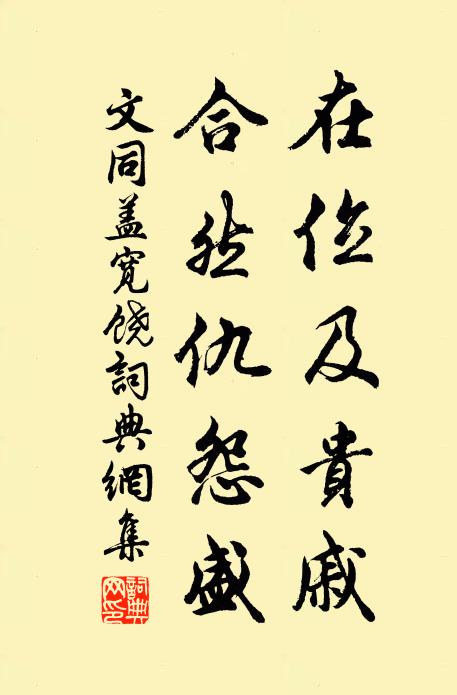 在位及貴戚
合然仇怨盛
文同盖寬饶詞典網集
詞典网印